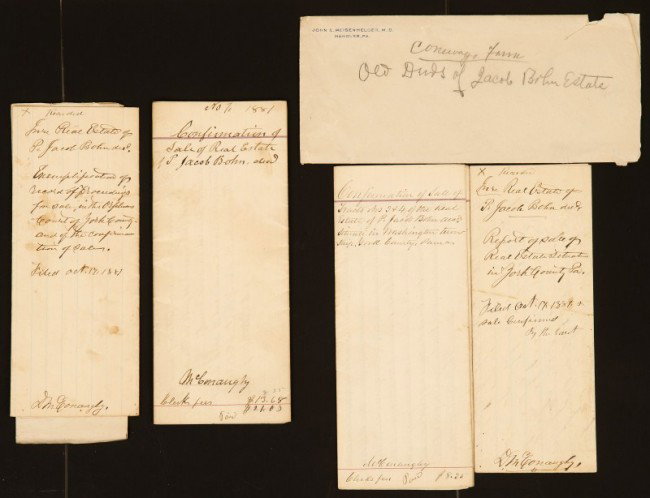 JOHN C. MEISENHELDER, M.D.
HANOVER, PA.
Conewago Farm
Old Deeds of Jacob Bohn Estate
X Recorded
In re Real Estate of
P. Jacob Bohn decd.
Exemplification of
record of proceedings
for sale, in the Orphans
Court of York County
and of the confirma
tion of sales.
Filed Oct. 17, 1881
D. McConaughy.
No. 1. 1881
Confirmation of
Sale of Real Estate
of P. Jacob Bohn. decd
McConaughy
Clerks fees $13.68
Confirmation of Sale of
Tracts Nos 3 & 4 of the Real
Estate of P. Jacob Bohn decd
situate in Washington town
ship, York County, Penna
McConaughy
Clerks fees
X Recorded
In re Real Estate of
P. Jacob Bohn decd
Report of sale of
Real Estate situate
in York County Pa.
Filed Oct. 17 1881 &
sale confirmed
By the Court
D. McConaughy.